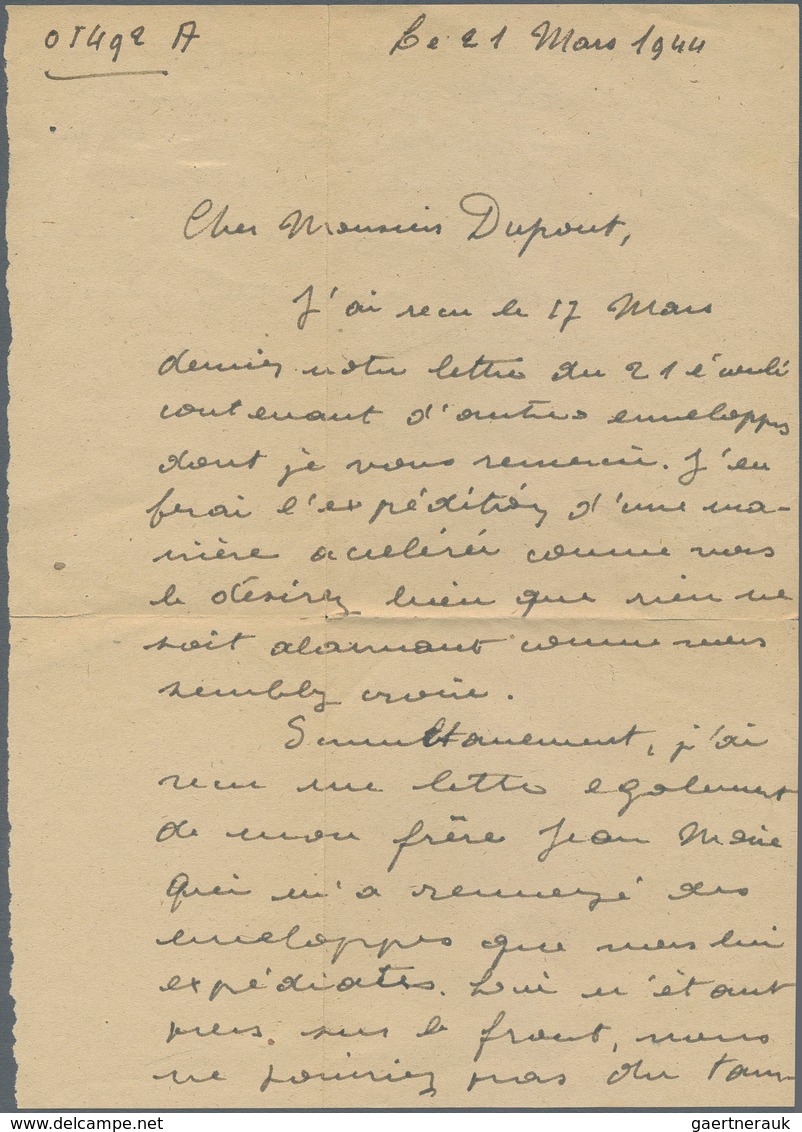 OT492 A
Le 21 Mars 1944
Cher Monsieur Dupont,
J'ai recu le 17 Mars
dernier votre lettre du 21 écoulé
contenant d'autres enveloppes
dont je vous remercie. J'en
ferai l'expédition d'une ma-
nière accélérée comme vous
le désirez bien que rien ne
soit alarmant comme vous
semblez croire.
Simultanement, j'ai
recu une lettre egalement
de mon frère Jean Marie
qui m'a renvoyé des
enveloppes que vous lui
expédiates. Lui n'étant
plus sur le front, vous
ne pouvez pas du tam-
gaertnerauk @ delcampe.net